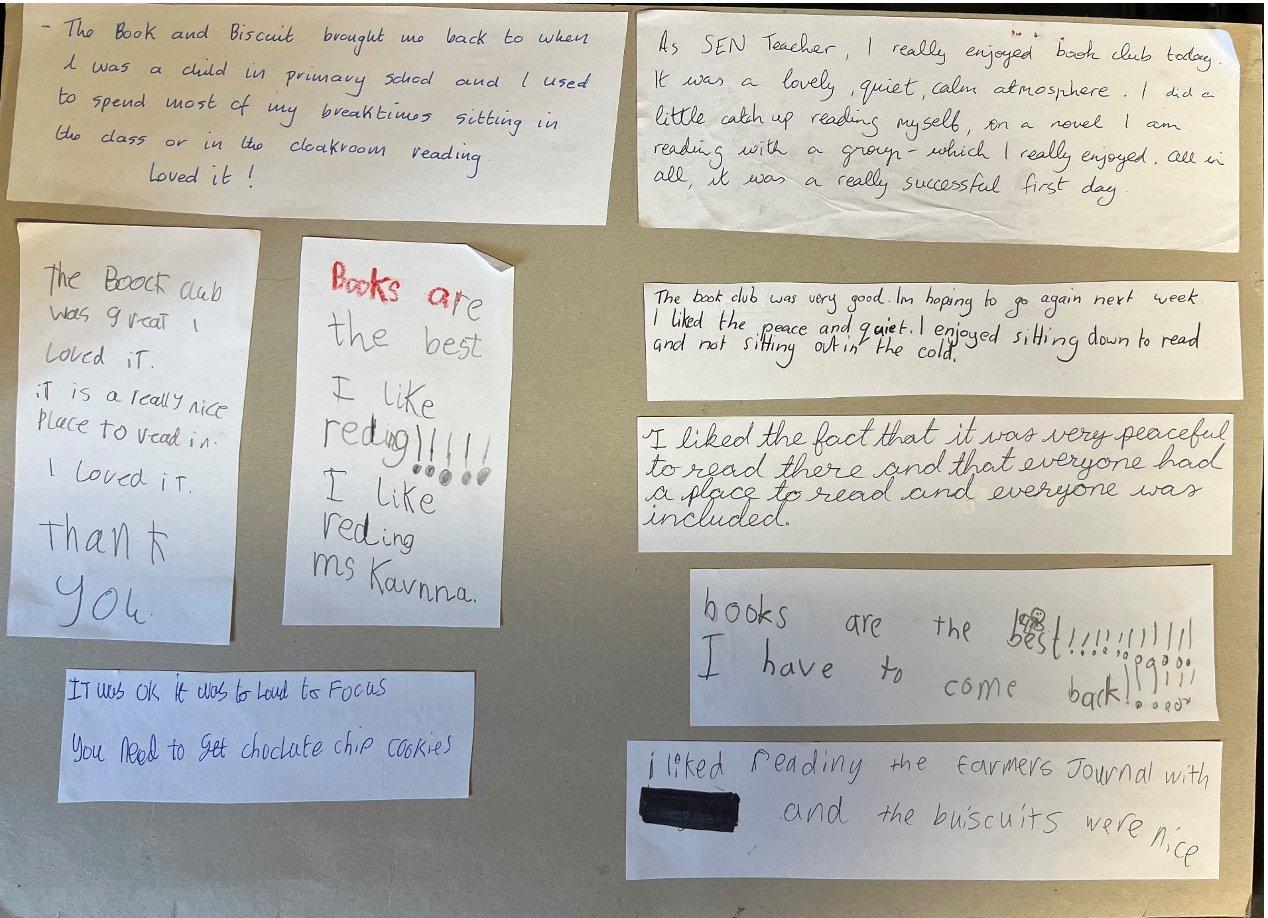 - The Book and Biscuit brought me back to when
I was a child in primary school and I used
to spend most of my breaktimes sitting in
the class or in the cloakroom reading.
Loved it !
As SEN Teacher, I really enjoyed book club today.
It was a lovely, quiet, calm atmosphere. I did a
little catch up reading myself, on a novel I am
reading with a group - which I really enjoyed. All in
all, it was a really successful first day.
The Boock club
was great I
loved iT.
iT is a really nice
place to read in.
I loved iT.
Thank
you.
Books are
the best
I like
reding!!!!!!
I like
reding
ms Kavnna.
The book club was very good. Im hoping to go again next week.
I liked the peace and quiet. I enjoyed sitting down to read
and not sitting out in the cold.
I liked the fact that it was very peaceful
to read there and that everyone had
a place to read and everyone was
included.
books are the best!!!!!!!!!!!
I have to come back!!!!!
IT was OK it was to Loud to Focus
You need to get choclate chip cookies
i liked reading the Farmers Journal with
and the buiscuits were nice